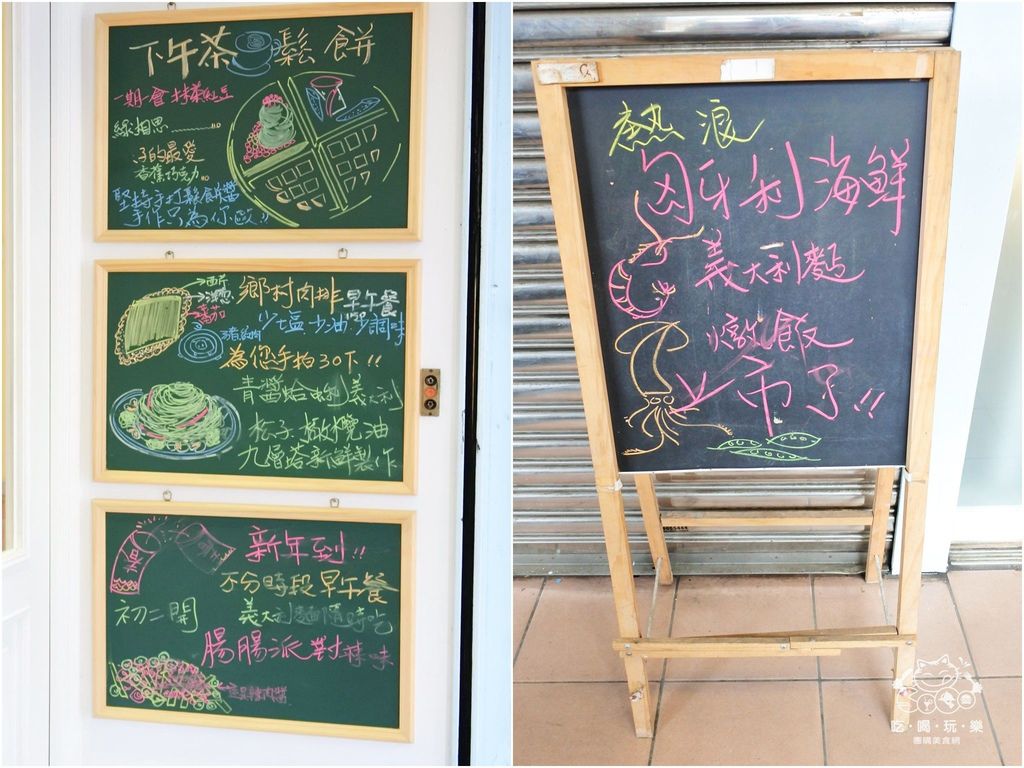 下午茶 鬆餅
一期一會 抹茶紅豆
綠相思
子的最愛
香蕉巧克力
堅持手打鬆餅醬
手作只為你歐!!
鄉村肉排 早午餐
番茄
少塩少油少調味
為您手拍30下!!
青醬蛤蜊義大利
松子 橄欖油
九層塔新鮮製作
新年到!!
不分時段早午餐
初二開
義大利麵隨時吃
腸腸派對 辣味
熱浪
匈牙利海鮮
義大利麵
燉飯
上市了!!
吃·喝·玩·樂
團購美食網